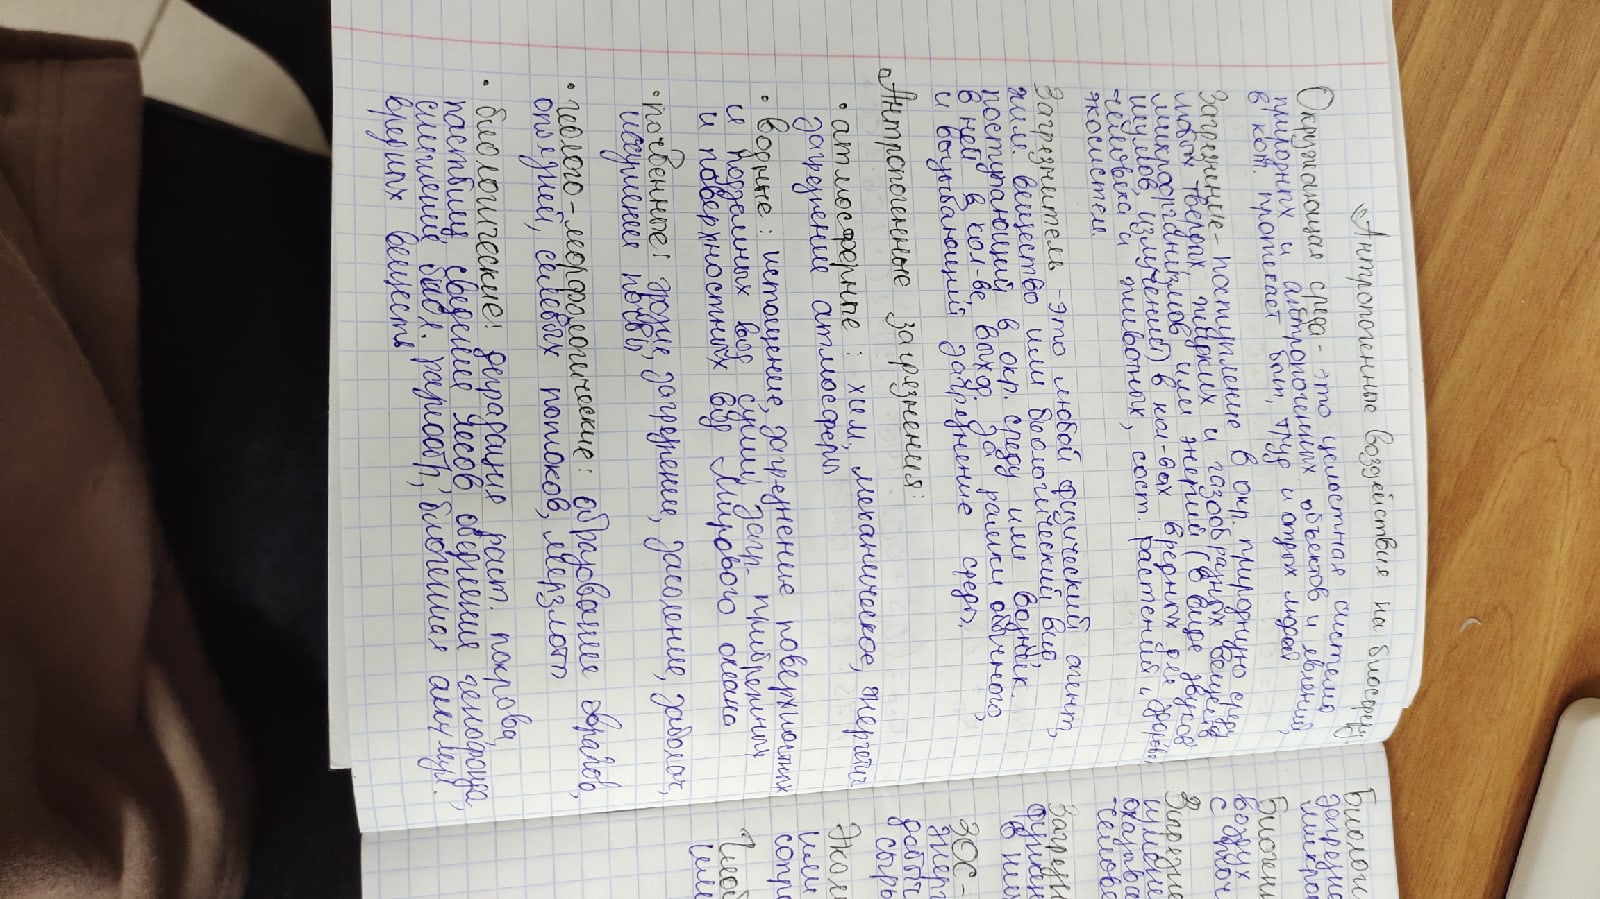 Антропогенные воздействия на биосферу.
Окружающая среда - это целостная система
природных и антропогенных объектов и явлений,
в кот. протекает быт, труд и отдых людей
Загрезнение - поступление в окр. природную среду
любых твёрдых, жидких и газообразных веществ,
микроорганизмов или энергий (в виде звуков
шумов, излучений) в кол-вах вредных для здоровья
человека и животных, сост. растений и
экосистем.
Загрезнитель - это любой физический агент,
хим. вещество или биологический вид,
поступающий в окр. среду или возник.
в ней в кол-ве, выход. за рамки обычного,
и вызывающий загрезнение среды.
Антропогенные загрязнения:
• атмосферные: хим, механическое, энергетич.
загрезнение атмосферы
• водные: истощение, загрезнение поверхностных
и подземных вод суши, загр. прибрежных
и поверхностных вод Мирового океана
• почвенные: эрозия, загрезнение, засоление, заболач,
иссушение почвы
• геолого-морфологические: образование оврагов,
оползней, селевых потоков, мерзлоты
• биологические: деградация раст. покрова,
пастбищ, сведение лесов, обеднения генофонда,
снижение биол. разнообр, биогенная аккумул.
вредных веществ
Биологи
загрезне
микро
Биогенн
воздух
с точ
Загрезне
измене
оказыва
челове
Загрезн
функци
в ни
ЗОС-
энерг
добыч
сырь
или
сопро